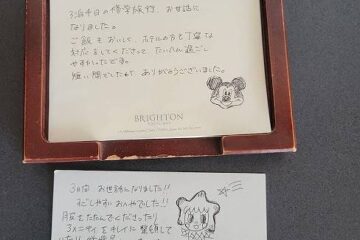 3泊4日の修学旅行、お世話に
なりました。
ご飯もおいしく、ホテルの方も丁寧な
対応をしてくださって、たいへん過ごし
やすかったです。
短い間でしたが、ありがとうございました。
BRIGHTON
3日間 お世話になりました!!
すごしやすいおへやでした!!
服をたたんでくださったり
アメニティをキレイに整頓して